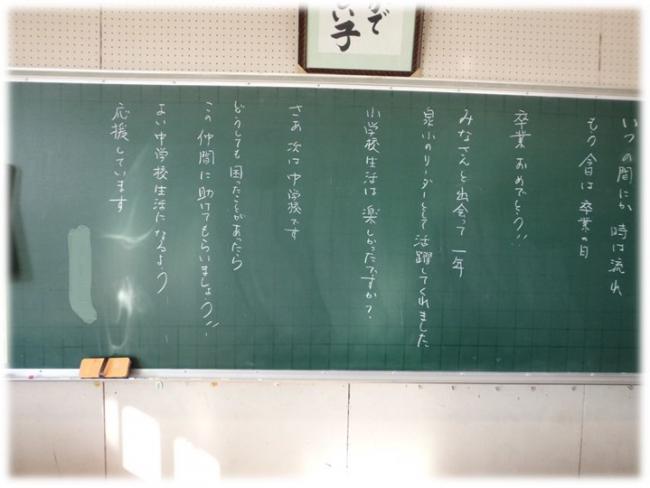 で
い子
いつの間にか 時は流れ
もう今日は卒業の日
卒業おめでとう!!
みなさんと出会って一年
泉小のリーダーとして活躍してくれました
小学校生活は楽しかったですか?
さあ次は中学校です
どうしても困ったことがあったら
この仲間に助けてもらいましょう!!
よい中学校生活になるよう
応援しています